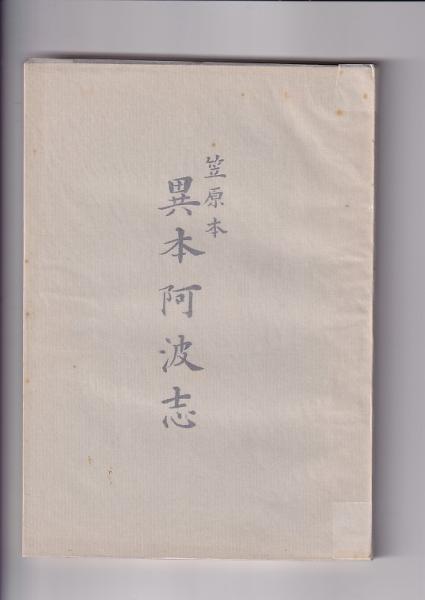 笠原本
異本阿波志